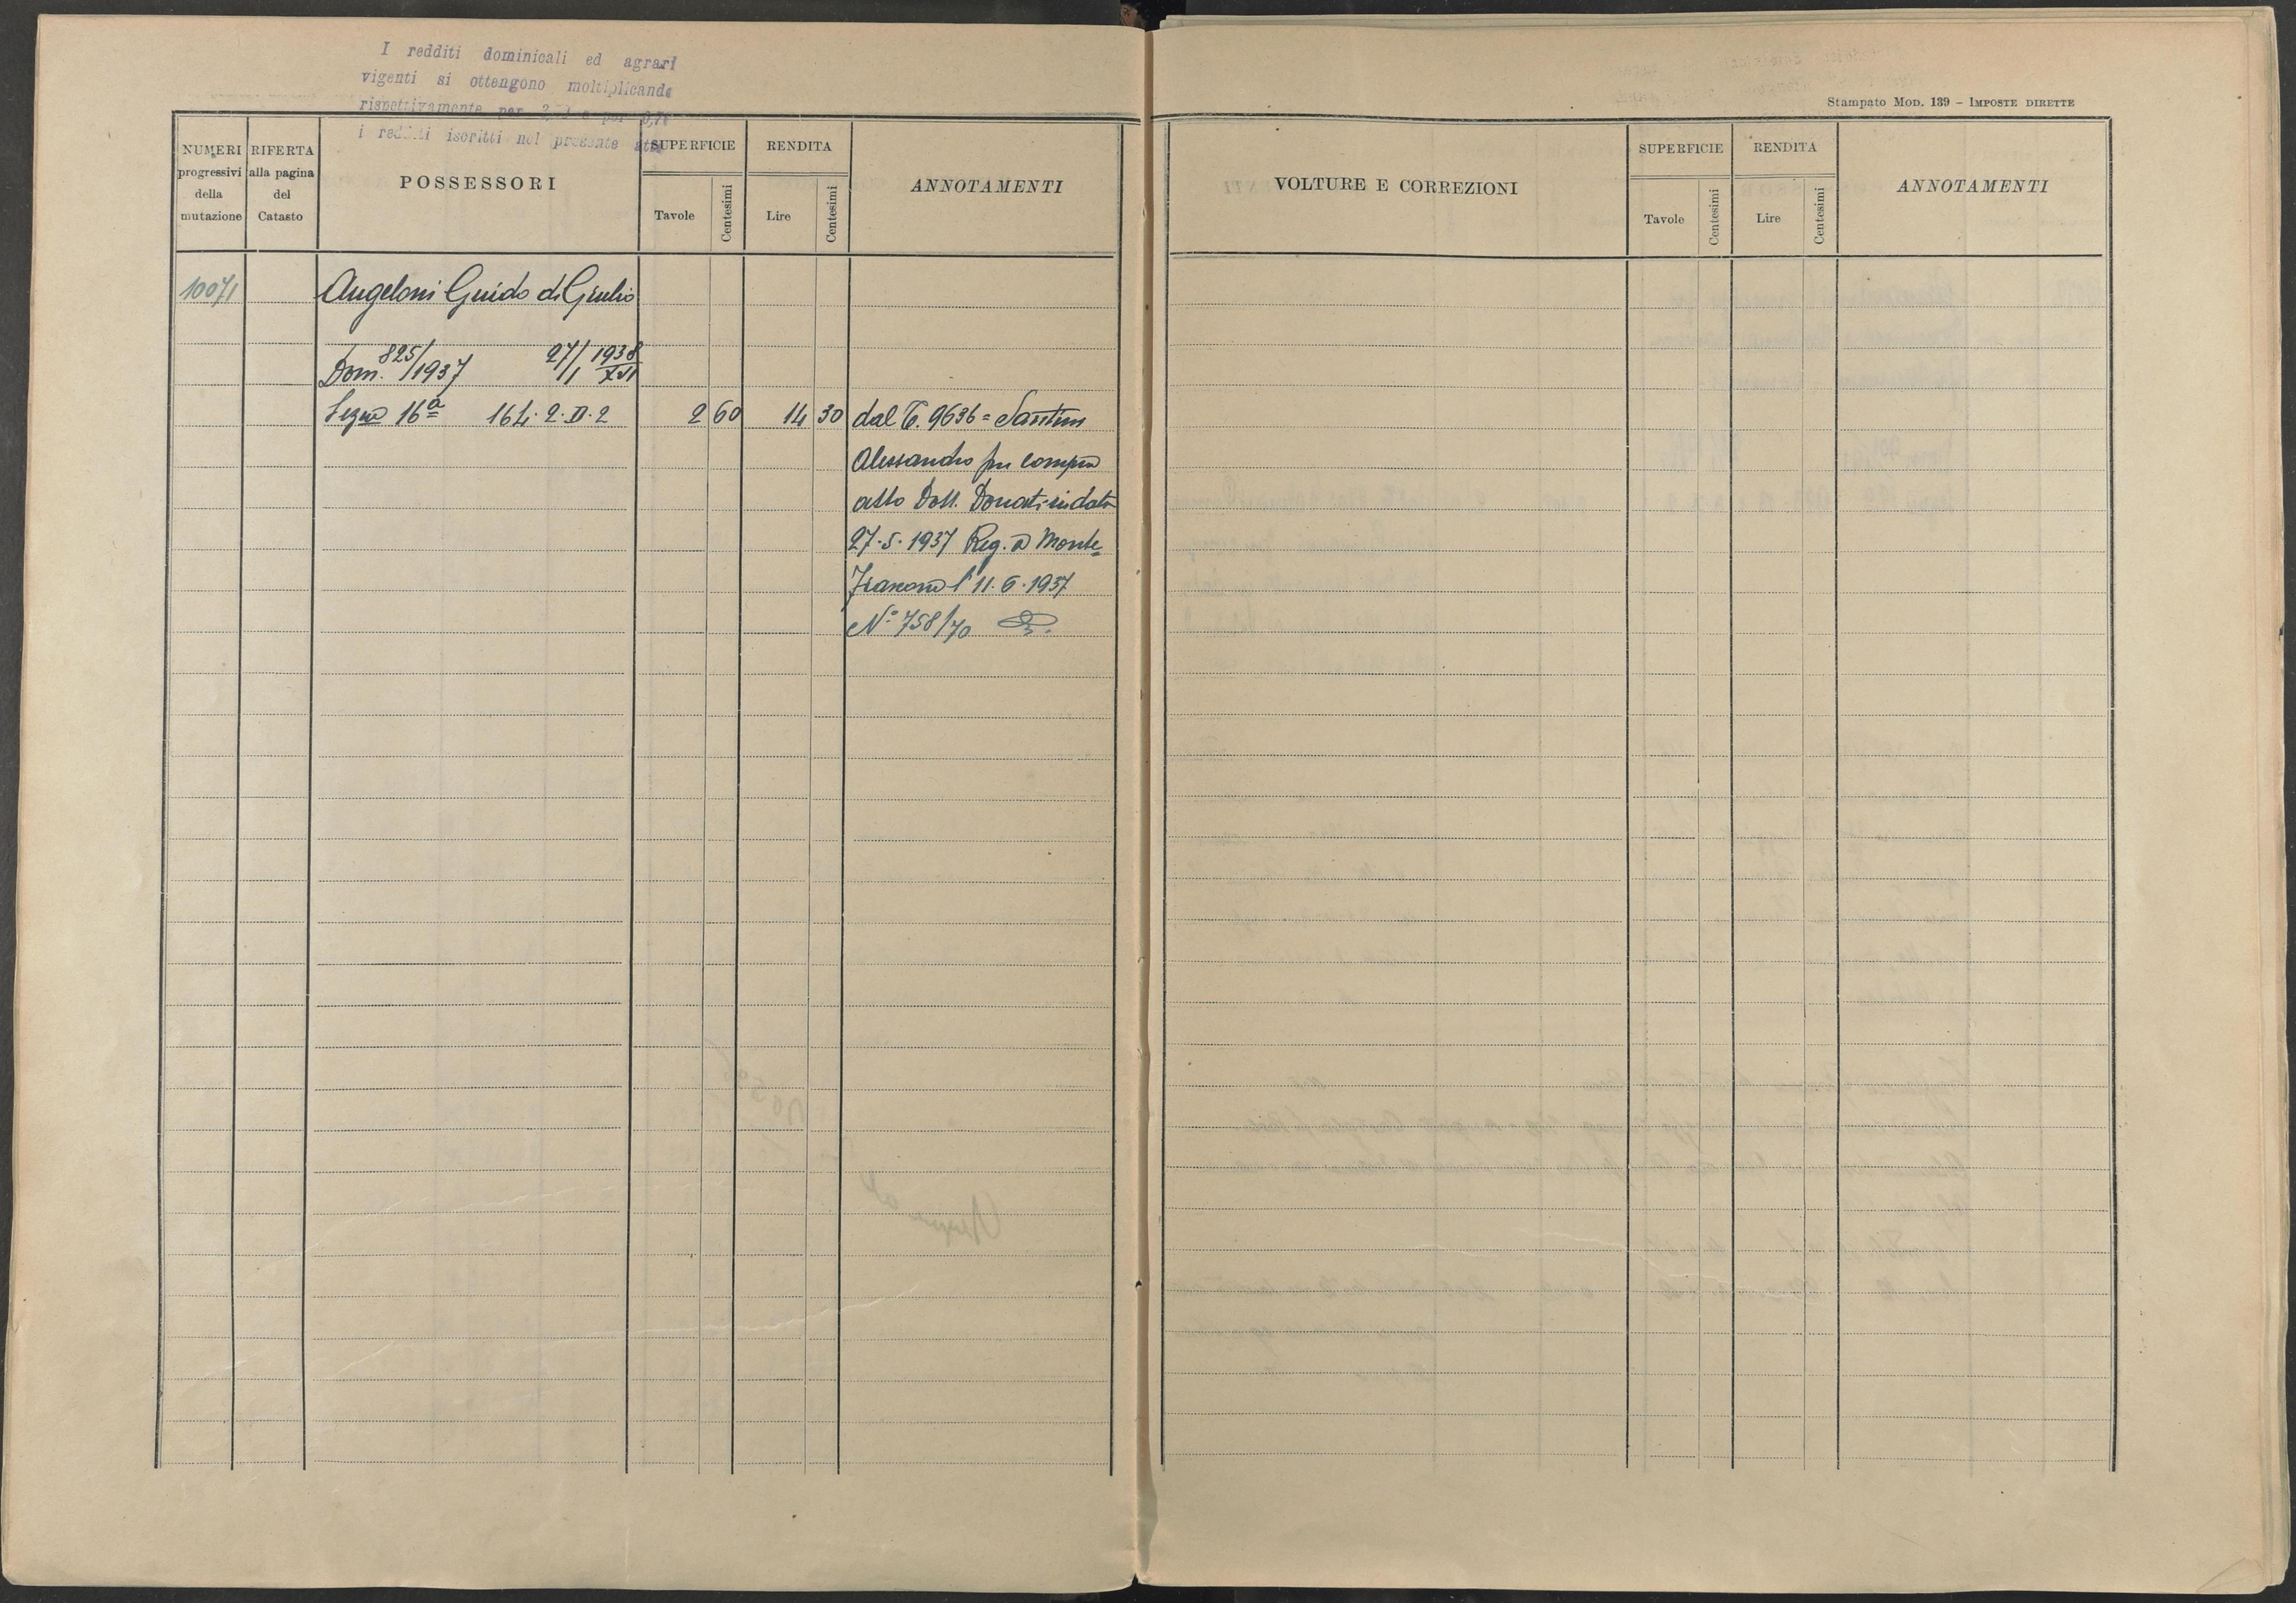 I redditi dominicali ed agrari
vigenti si ottengono moltiplicando
rispettivamente per
i redditi iscritti nel presente atto
NUMERI progressivi della mutazione
RIFERTA alla pagina del Catasto
POSSESSORI
SUPERFICIE
Tavole
Centesimi
RENDITA
Lire
Centesimi
ANNOTAMENTI
10071
Angeloni Guido di Giulio
Dom. 825/1937 27/1 1938 XVI
Segue 16ª 164. 2. D. 2 2 60 14 30 dal T. 9636 =
Alessandro per compra
atto Dott. Donati in data
27.5.1937 Reg. a Monte=
l'11.6.1937
N° 758/70
Stampato Mod. 139 – Imposte dirette
VOLTURE E CORREZIONI
SUPERFICIE
Tavole
Centesimi
RENDITA
Lire
Centesimi
ANNOTAMENTI